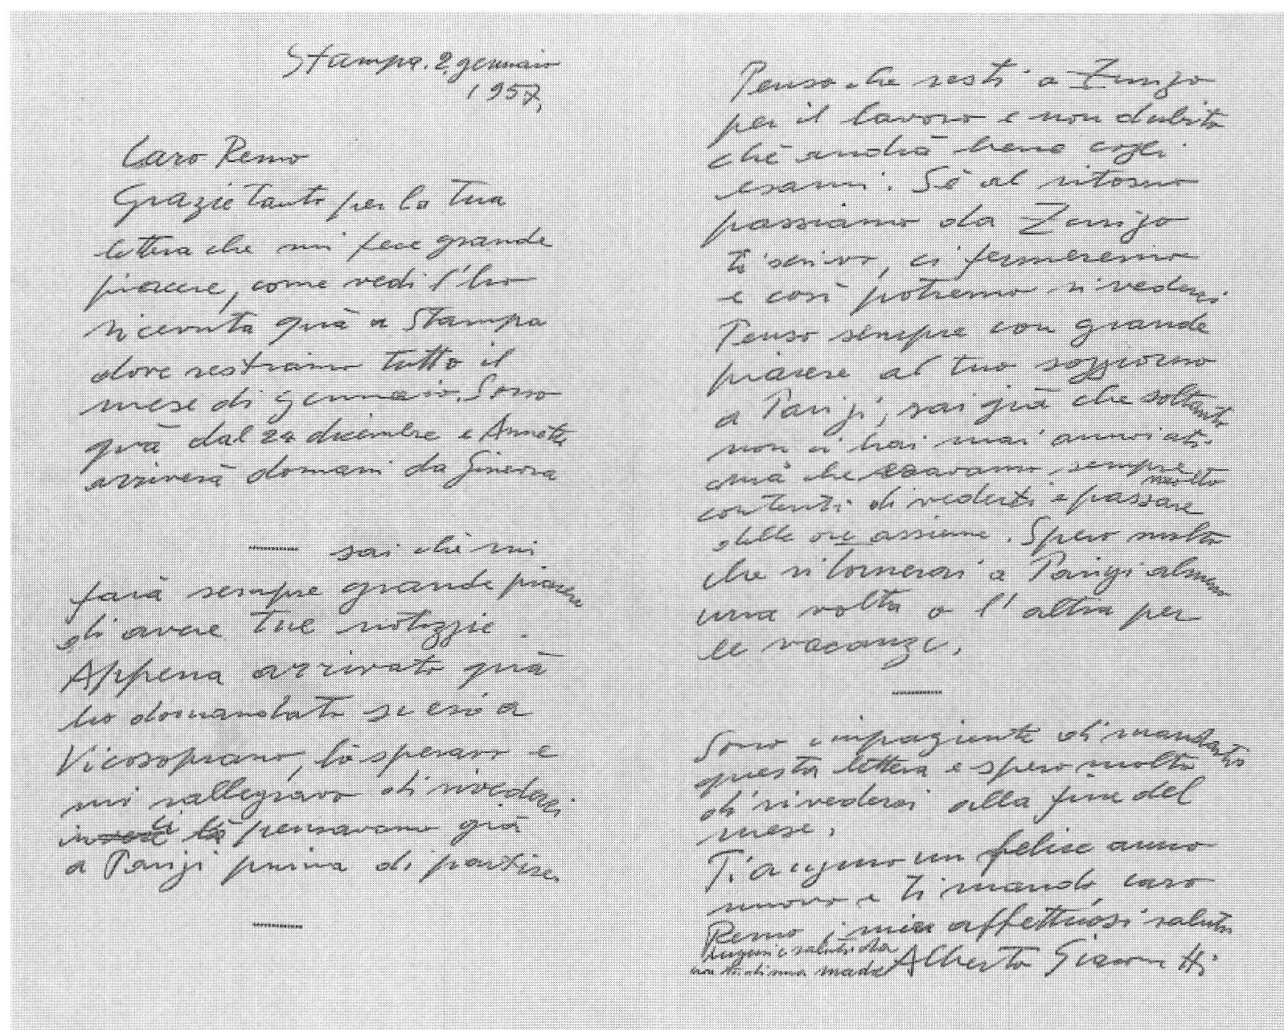 Stampa. 2. gennaio
1957,
Caro Remo
Grazie tanto per la tua
lettera che mi fece grande
piacere, come vedi l'ho
ricevuta quà a Stampa
dove restiamo tutto il
mese di gennaio. Sono
quà dal 24 dicembre e Annette
arriverà domani da Ginevra
sai chè mi
farà sempre grande piacere
di avere tue notizzie.
Appena arrivato quà
ho domandato se eri a
Vicosoprano, lò speravo e
mi rallegravo di rivederci
ci pensavamo già
a Parigi prima di partire.
Penso che resti a Zurigo
per il lavoro e non dubito
chè andrà bene cogli
esami. Sè al ritorno
passiamo da Zurigo
ti scrivo, ci fermeremo
e così potremo rivederci
Penso sempre con grande
piacere al tuo soggiorno
a Parigi, sai già che soltanto
non ci hai mai annoiati
mà che eravamo sempre molto
contenti di vederti e passare
delle ore assieme. Spero molto
che ritornerai a Parigi almeno
una volta o l'altra per
le vacanze.
Sono impaziente di mandarti
questa lettera e spero molto
di rivederci alla fine del
mese.
Ti auguro un felice anno
nuovo e ti mando, caro
Remo, i miei affettuosi saluti
Alberto Giacometti
auguri e saluti da
mia madre